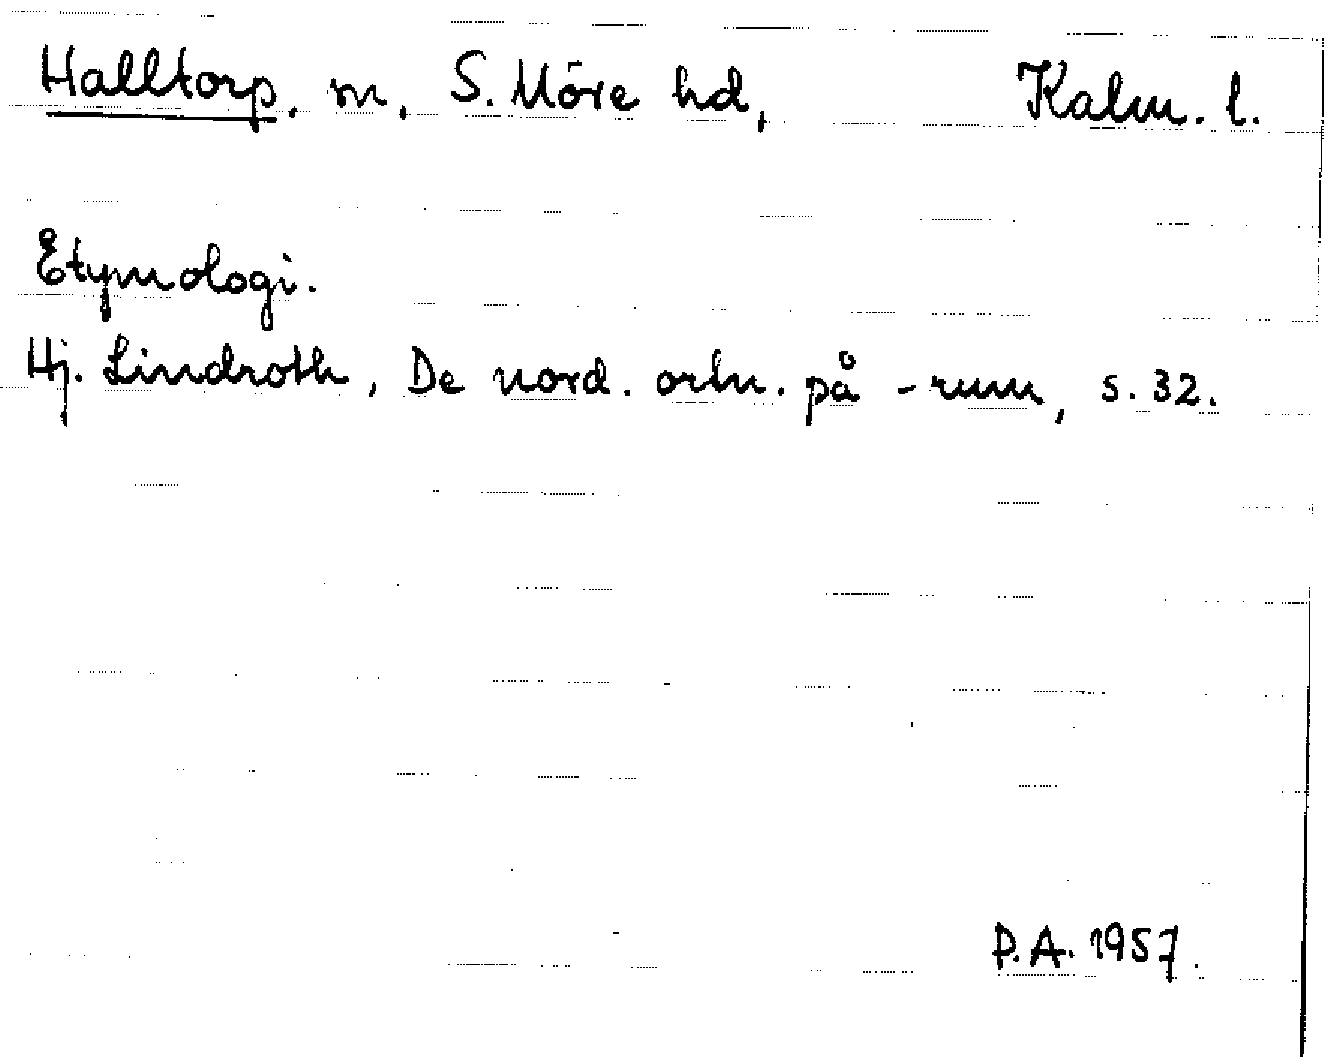 Halltorp. sn, S. Möre hd, Kalm. l.
Etymologi.
Hj. Lindroth, De nord. ortn. på -rum, s. 32.
P.A. 1957.